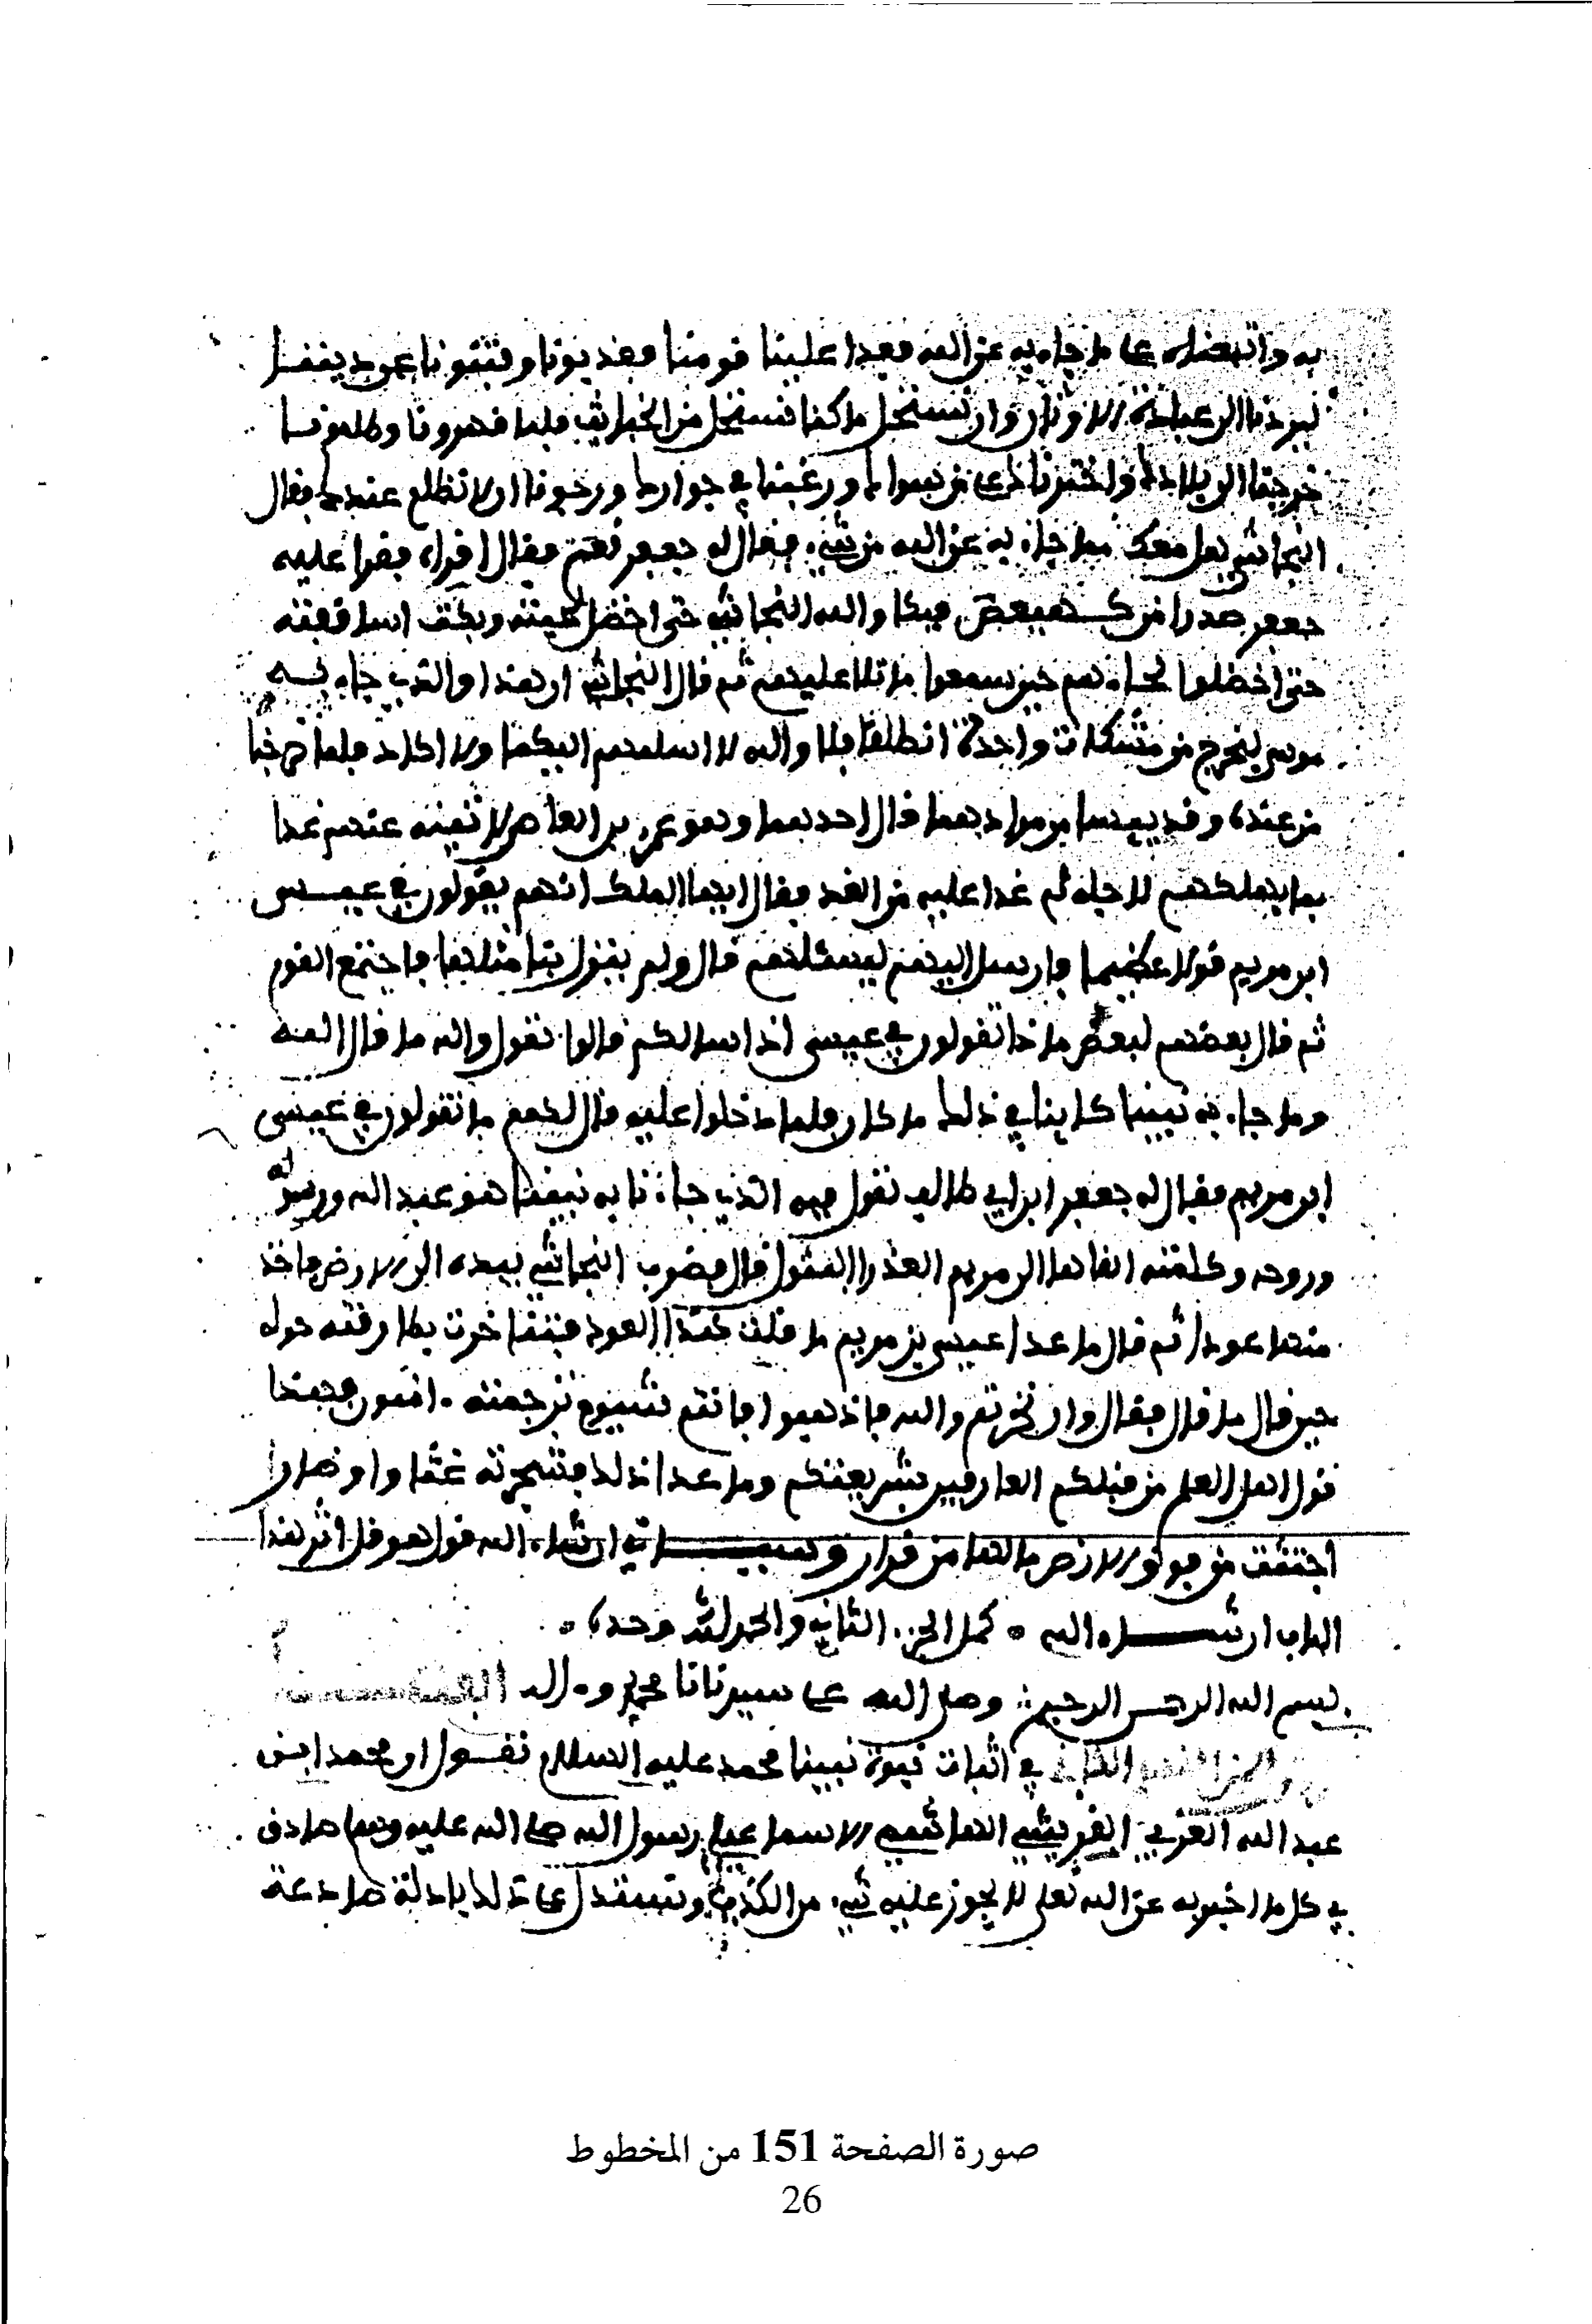 به واتبعناه على ما جاء به عن الله فعدا علينا قومنا فعذبونا وفتنونا عن ديننا
ليردنا الى عبادة الاوثان وان نستحل ما كنا نستحل من الخبائث فلما قهرونا وظلمونا
خرجنا الى بلادك واخترناك على من سواك ورغبنا في جوارك ورجونا ان لا نظلم عندك فقال
النجاشي هل معك مما جاء به عن الله من شيء فقال له جعفر نعم فقال اقراه فقرا عليه
جعفر صدرا من كهيعص فبكا والله النجاشي حتى اخضل لحيته وبكت اساقفته
حتى اخضلوا لحاءهم حين سمعوا ما تلا عليهم ثم قال النجاشي ان هذا والذي جاء به
موسى ليخرج من مشكات واحدة انطلقا فلا والله لا اسلمهم اليكما ولا اكاد فلما خرجا
من عنده وقد يبسا من مرادهما قال احدهما وهو عمر بن العاص لاتينه عنهم غدا
بما يهلكهم لاجله ثم غدا عليه من الغد فقال ايها الملك انهم يقولون في عيسى
ابن مريم قولا عظيما فارسل اليهم ليسئلهم قال ولم ينزل بنا مثلها فاجتمع القوم
ثم قال بعضهم لبعض ماذا تقولون في عيسى اذا سالكم قالوا نقول والله ما قال الله
وما جاء به نبينا كاينا في ذلك ما كان فلما دخلوا عليه قال لهم ما تقولون في عيسى
ابن مريم فقال له جعفر ابن ابي طالب نقول فيه الذي جاءنا به نبينا هو عبد الله ورسوله
وروحه وكلمته القاها الى مريم العذرا البتول قال فضرب النجاشي بيده الى الارض فاخذ
منها عودا ثم قال ما عدا عيسى بن مريم ما قلت هذا العود فتناخرت بطارقته حوله
حين قال ما قال فقال وان نخرتم والله فاذهبوا فانتم شيوم ترجمته امنون فهذا
قول اهل العلم من قبلكم العارفين بشريعتكم وما عدا ذلك فشجرته غثا واوضارا
اجتثت من فوق الارض ما لها من قرار وسياتي ان شاء الله قول هو قل اثر هذا
الباب ان شاء الله كمل الجزء الثاني والحمد لله وحده
بسم الله الرحمن الرحيم وصلى الله على سيدنا محمد وءاله
الثاني في اثبات نبوة نبينا محمد عليه السلام نقول ان محمدا ابن
عبد الله العربي القريشي الهاشمي الاسماعيلي رسول الله صلى الله عليه وسلم صادق
في كل ما اخبر به عن الله تعلى لا يجوز عليه شيء من الكذب ونستدل على ذلك بادلة صادعة
صورة الصفحة 151 من المخطوط
26